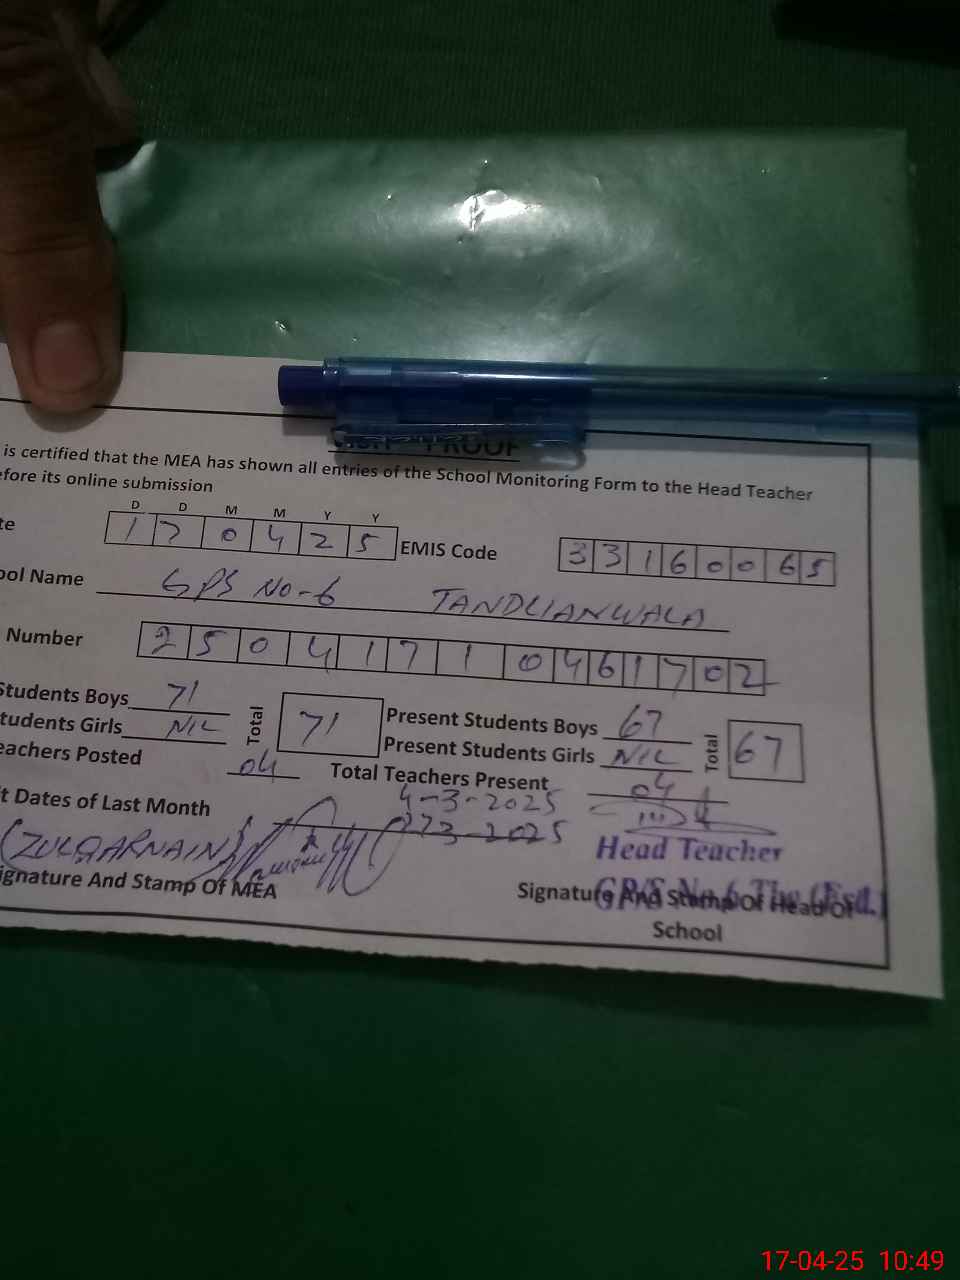 PROOF
is certified that the MEA has shown all entries of the School Monitoring Form to the Head Teacher
efore its online submission
te D D M M Y Y 1 7 0 4 2 5 EMIS Code 3 3 1 6 0 0 6 5
ool Name GPS No-6 TANDLIANWALA
Number 2 5 0 4 1 7 1 0 4 6 1 7 0 2
Students Boys 71 Total 71 Present Students Boys 67 Total 67
tudents Girls NIL Present Students Girls NIL
eachers Posted 04 Total Teachers Present 04
it Dates of Last Month 4-3-2025
273-2025
(ZULQARNAIN)
Head Teacher
ignature And Stamp Of MEA
Signature And Stamp Of Head Of
School
17-04-25 10:49